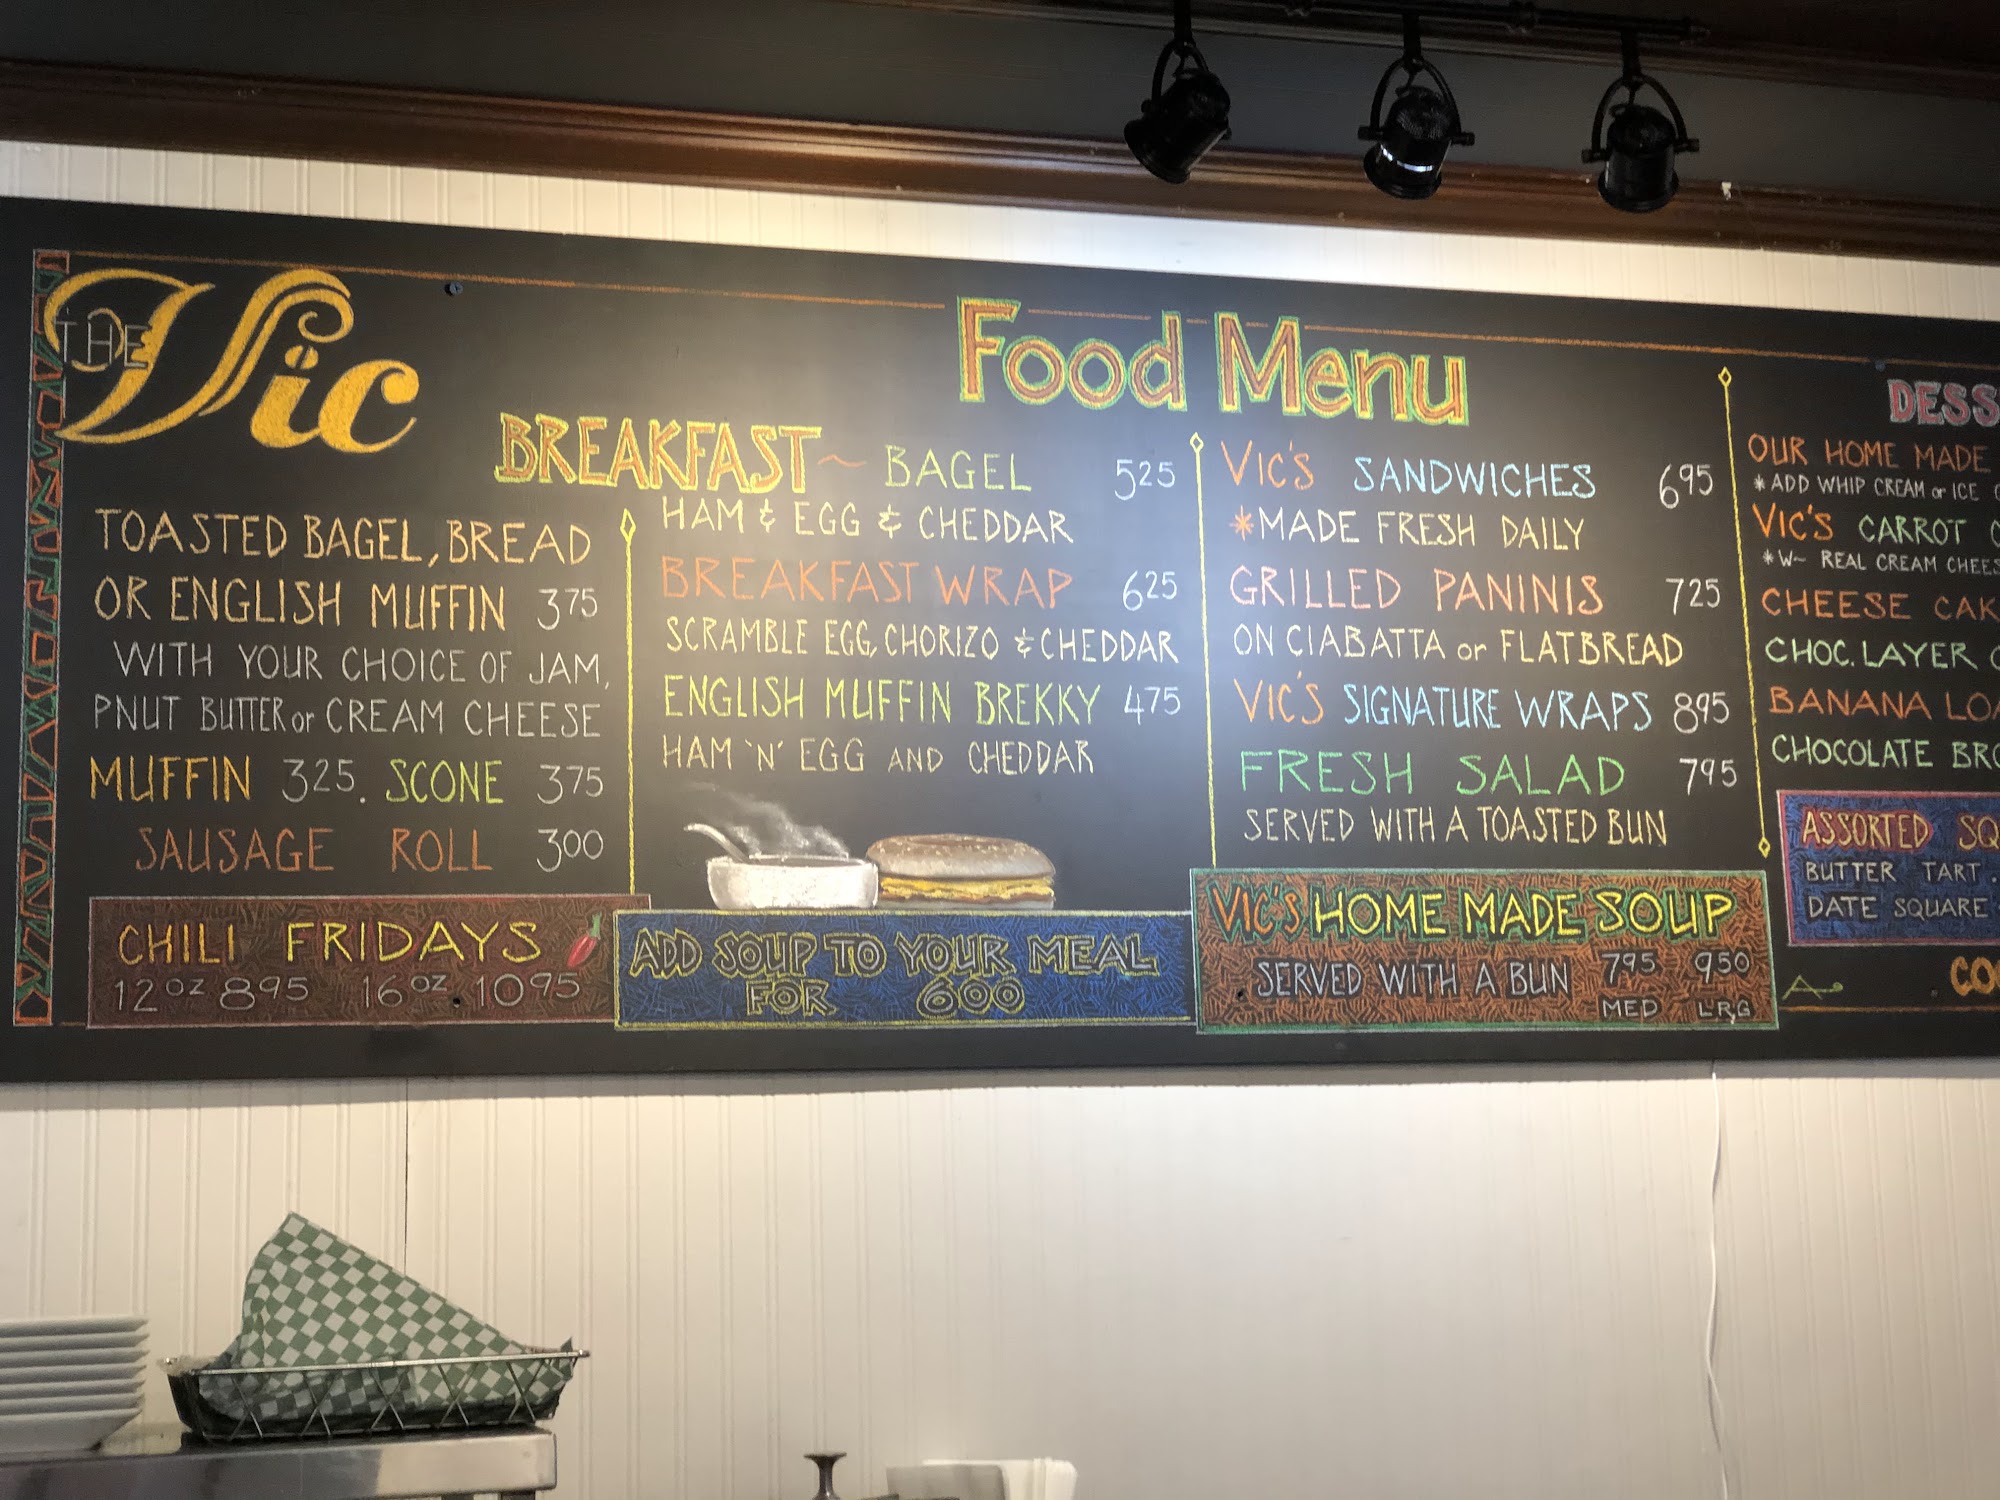 THE Vic
Food Menu
TOASTED BAGEL, BREAD
OR ENGLISH MUFFIN 375
WITH YOUR CHOICE OF JAM,
PNUT BUTTER or CREAM CHEESE
MUFFIN 325. SCONE 375
SAUSAGE ROLL 300
CHILI FRIDAYS
12oz 895 16oz. 1095
BREAKFAST ~ BAGEL 525
HAM & EGG & CHEDDAR
BREAKFAST WRAP 625
SCRAMBLE EGG, CHORIZO & CHEDDAR
ENGLISH MUFFIN BREKKY 475
HAM 'N' EGG AND CHEDDAR
ADD SOUP TO YOUR MEAL
FOR 600
VIC'S SANDWICHES 695
*MADE FRESH DAILY
GRILLED PANINIS 725
ON CIABATTA or FLATBREAD
VIC'S SIGNATURE WRAPS 895
FRESH SALAD 795
SERVED WITH A TOASTED BUN
VIC'S HOME MADE SOUP
SERVED WITH A BUN 795 950
MED LRG
DESS
OUR HOME MADE
* ADD WHIP CREAM or ICE
VIC'S CARROT
* W~ REAL CREAM CHEES
CHEESE CAK
CHOC. LAYER
BANANA LOA
CHOCOLATE BRO
ASSORTED SQ
BUTTER TART.
DATE SQUARE
COO